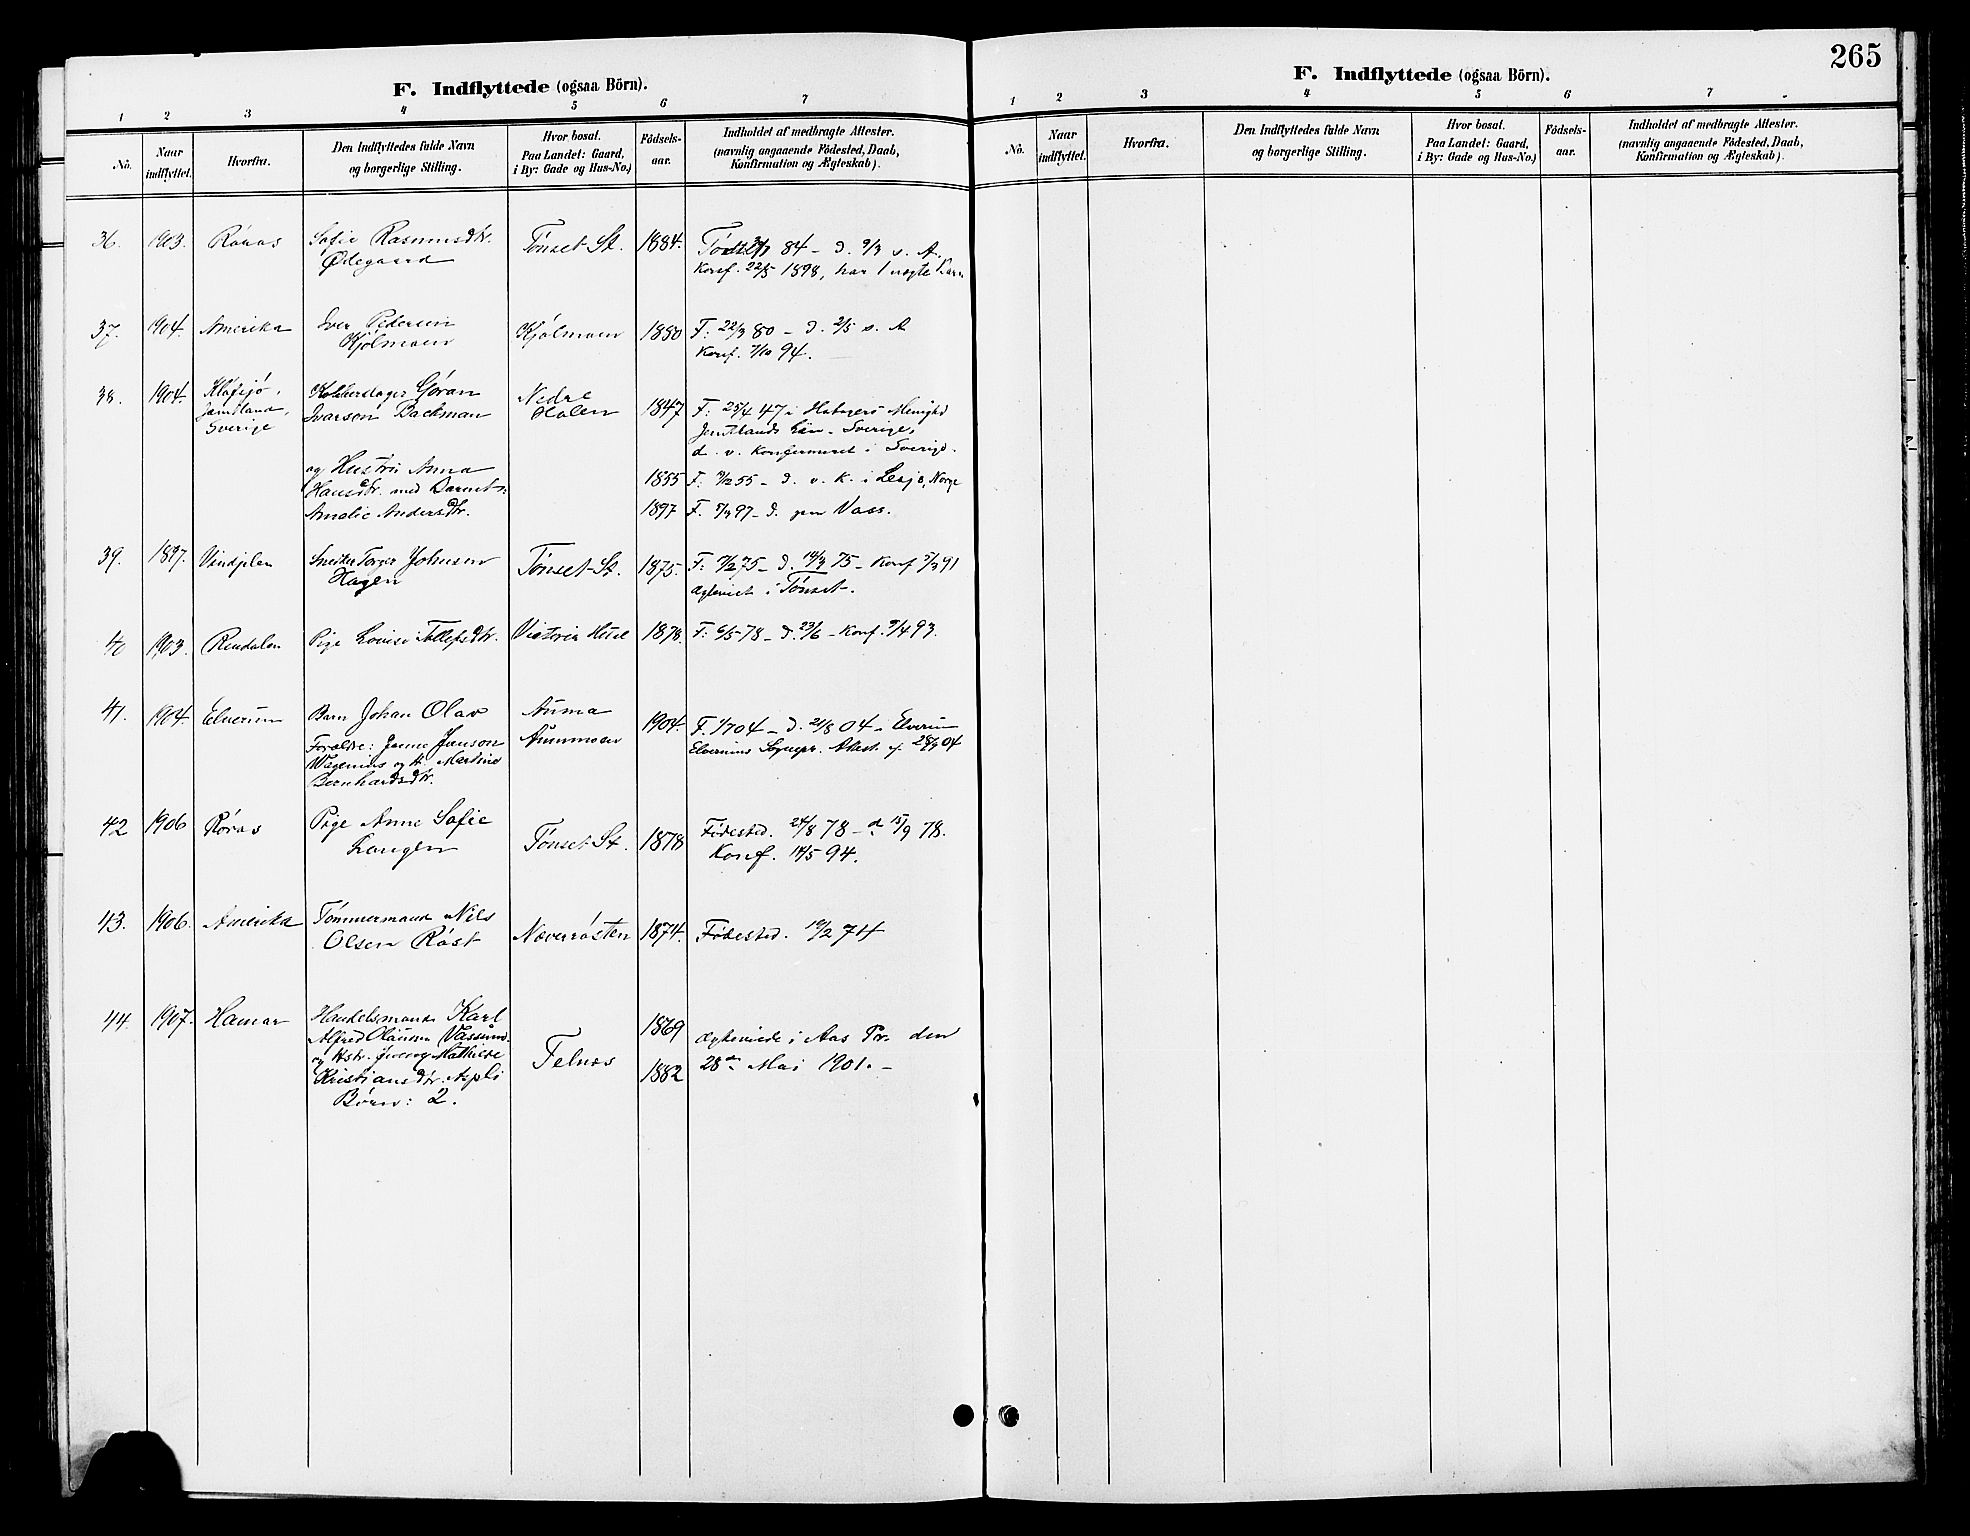 F. Indflyttede (ogsaa Börn).
1 2 3 4 5 6 7
No. Naar indflyttet. Hvorfra. Den Indflyttedes fulde Navn og borgerlige Stilling. Hvor bosat. Paa Landet: Gaard, i By: Gade og Hus-No.) Födsels-aar. Indholdet af medbragte Attester. (navnlig angaaende Födested, Daab, Konfirmation og Ægteskab).
36. 1903. Røraas Sofie Rasmusdtr. Tønset St. 1884. 84 - d. s. A.
Ødegaard Konf. 22/5 1898, har 1 uægte Barn
37. 1904. Amerika Iver Pedersen Kjølmoen 1880 F: 22/3 80 - d. 2/5 s. A
Kjølmoen Konf. 7/10 94.
38. 1904. Göran Nedre 1847 F: 25/4 47 i
Jämtland, Ivarson Backman Holen Län - Sverige,
Sverige d. v. Konfirmeret i Sverige.
og Hustru Anna 1855 F. 55 - d. v. K. i Lesje, Norge
Hansdtr. med Barnet: 1897 F. 97 - d.
Amalie Andersdtr.
39. 1897. Snedker Torger Johnsen Tønset-St. 1875. F: 75 - d. 14/3 75 - Konf 91
Hagen i Tønset.
40 1903. Rendalen Pige Lovise Tollefsdtr. Victoria 1878. F: 6/5 78 - d. 23/6 - Konf. 9/4 93.
41. 1904. Elverum Barn Johan Olav Auma 1904. F. 1/7 04 - d. 21/8 04 - Elverum
Forældre: Janson Aummoen Elverums Sognepr. Attest af 28/9 04
og H. Martine
Bernhardsdtr.
42 1906 Røraas Pige Anne Sofie Tønset-St. 1878 Fødested. 24/8 78 - d. 15/9 78.
Langen Konf. 14/5 94.
43. 1906. Amerika Tømmermand Nils Næverrøsten 1874. Fødested. 19/2 74
Olsen Røst
44. 1907. Hamar Handelsmand Karl 1869 Ægteviede i Aas Pr. den
Alfred Olausen 28de Mai 1901. -
og Hstr. Mathilde Telnæs 1882
Kristiansdtr. Aspli
Børn: 2.
265
F. Indflyttede (ogsaa Börn).
1 2 3 4 5 6 7
No. Naar indflyttet. Hvorfra. Den Indflyttedes fulde Navn og borgerlige Stilling. Hvor bosat. Paa Landet: Gaard, i By: Gade og Hus-No.) Födsels-aar. Indholdet af medbragte Attester. (navnlig angaaende Födested, Daab, Konfirmation og Ægteskab).